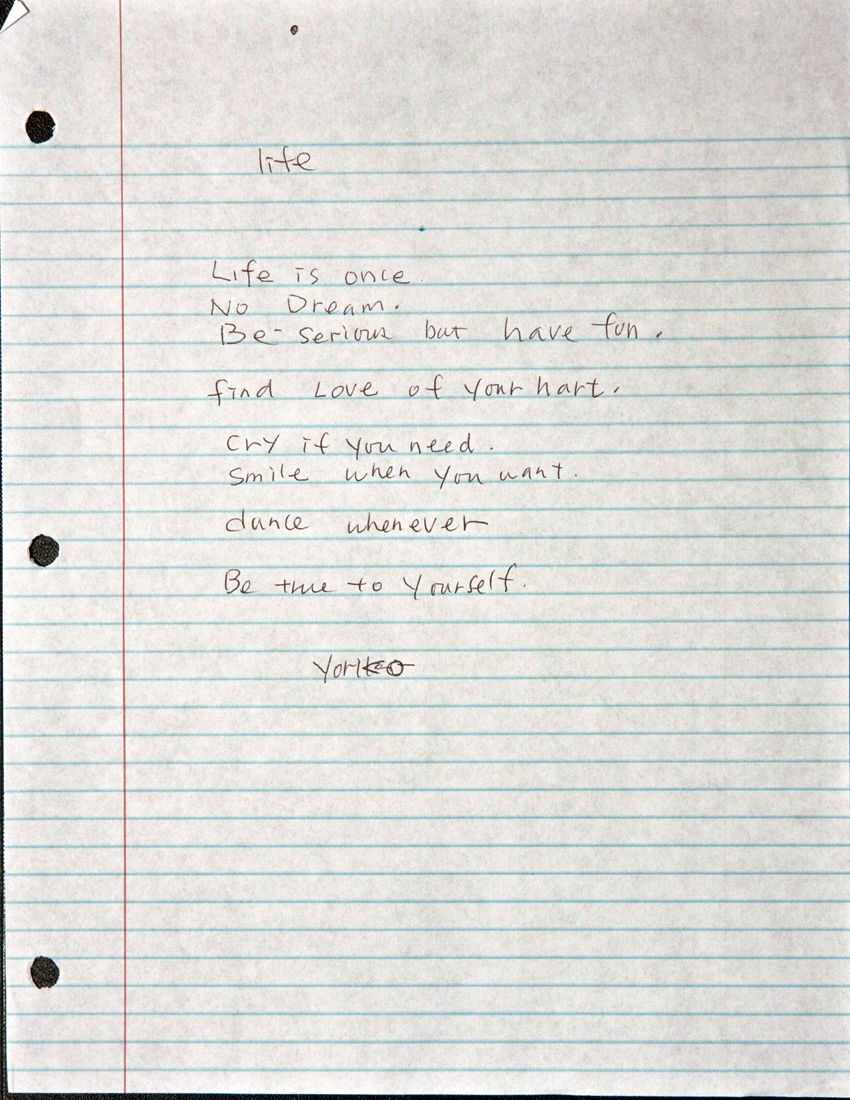 life
Life is once.
No Dream.
Be serious but have fun.
find Love of your hart.
Cry if you need.
Smile when you want.
dance whenever
Be true to yourself.
Yoriko